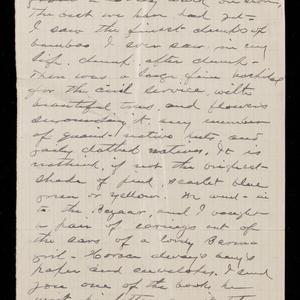 The best we have had yet-
I saw the finest clumps of
bamboo I ever saw in my
life, clump after clump-
There was a large fine hospital
for the civil service with
beautiful trees and flowers
surrounding it, any number
of quaint native huts, and
gaily clothed natives. It is
nothing if not the brightest
shade of pink, scarlet blue
green or yellow. We went in
to the Bazaar, and I bought
a pair of earrings out of
the ears of a lovely Burma
girl- Horace always buys
paper and envelopes. I send
you one of the books he